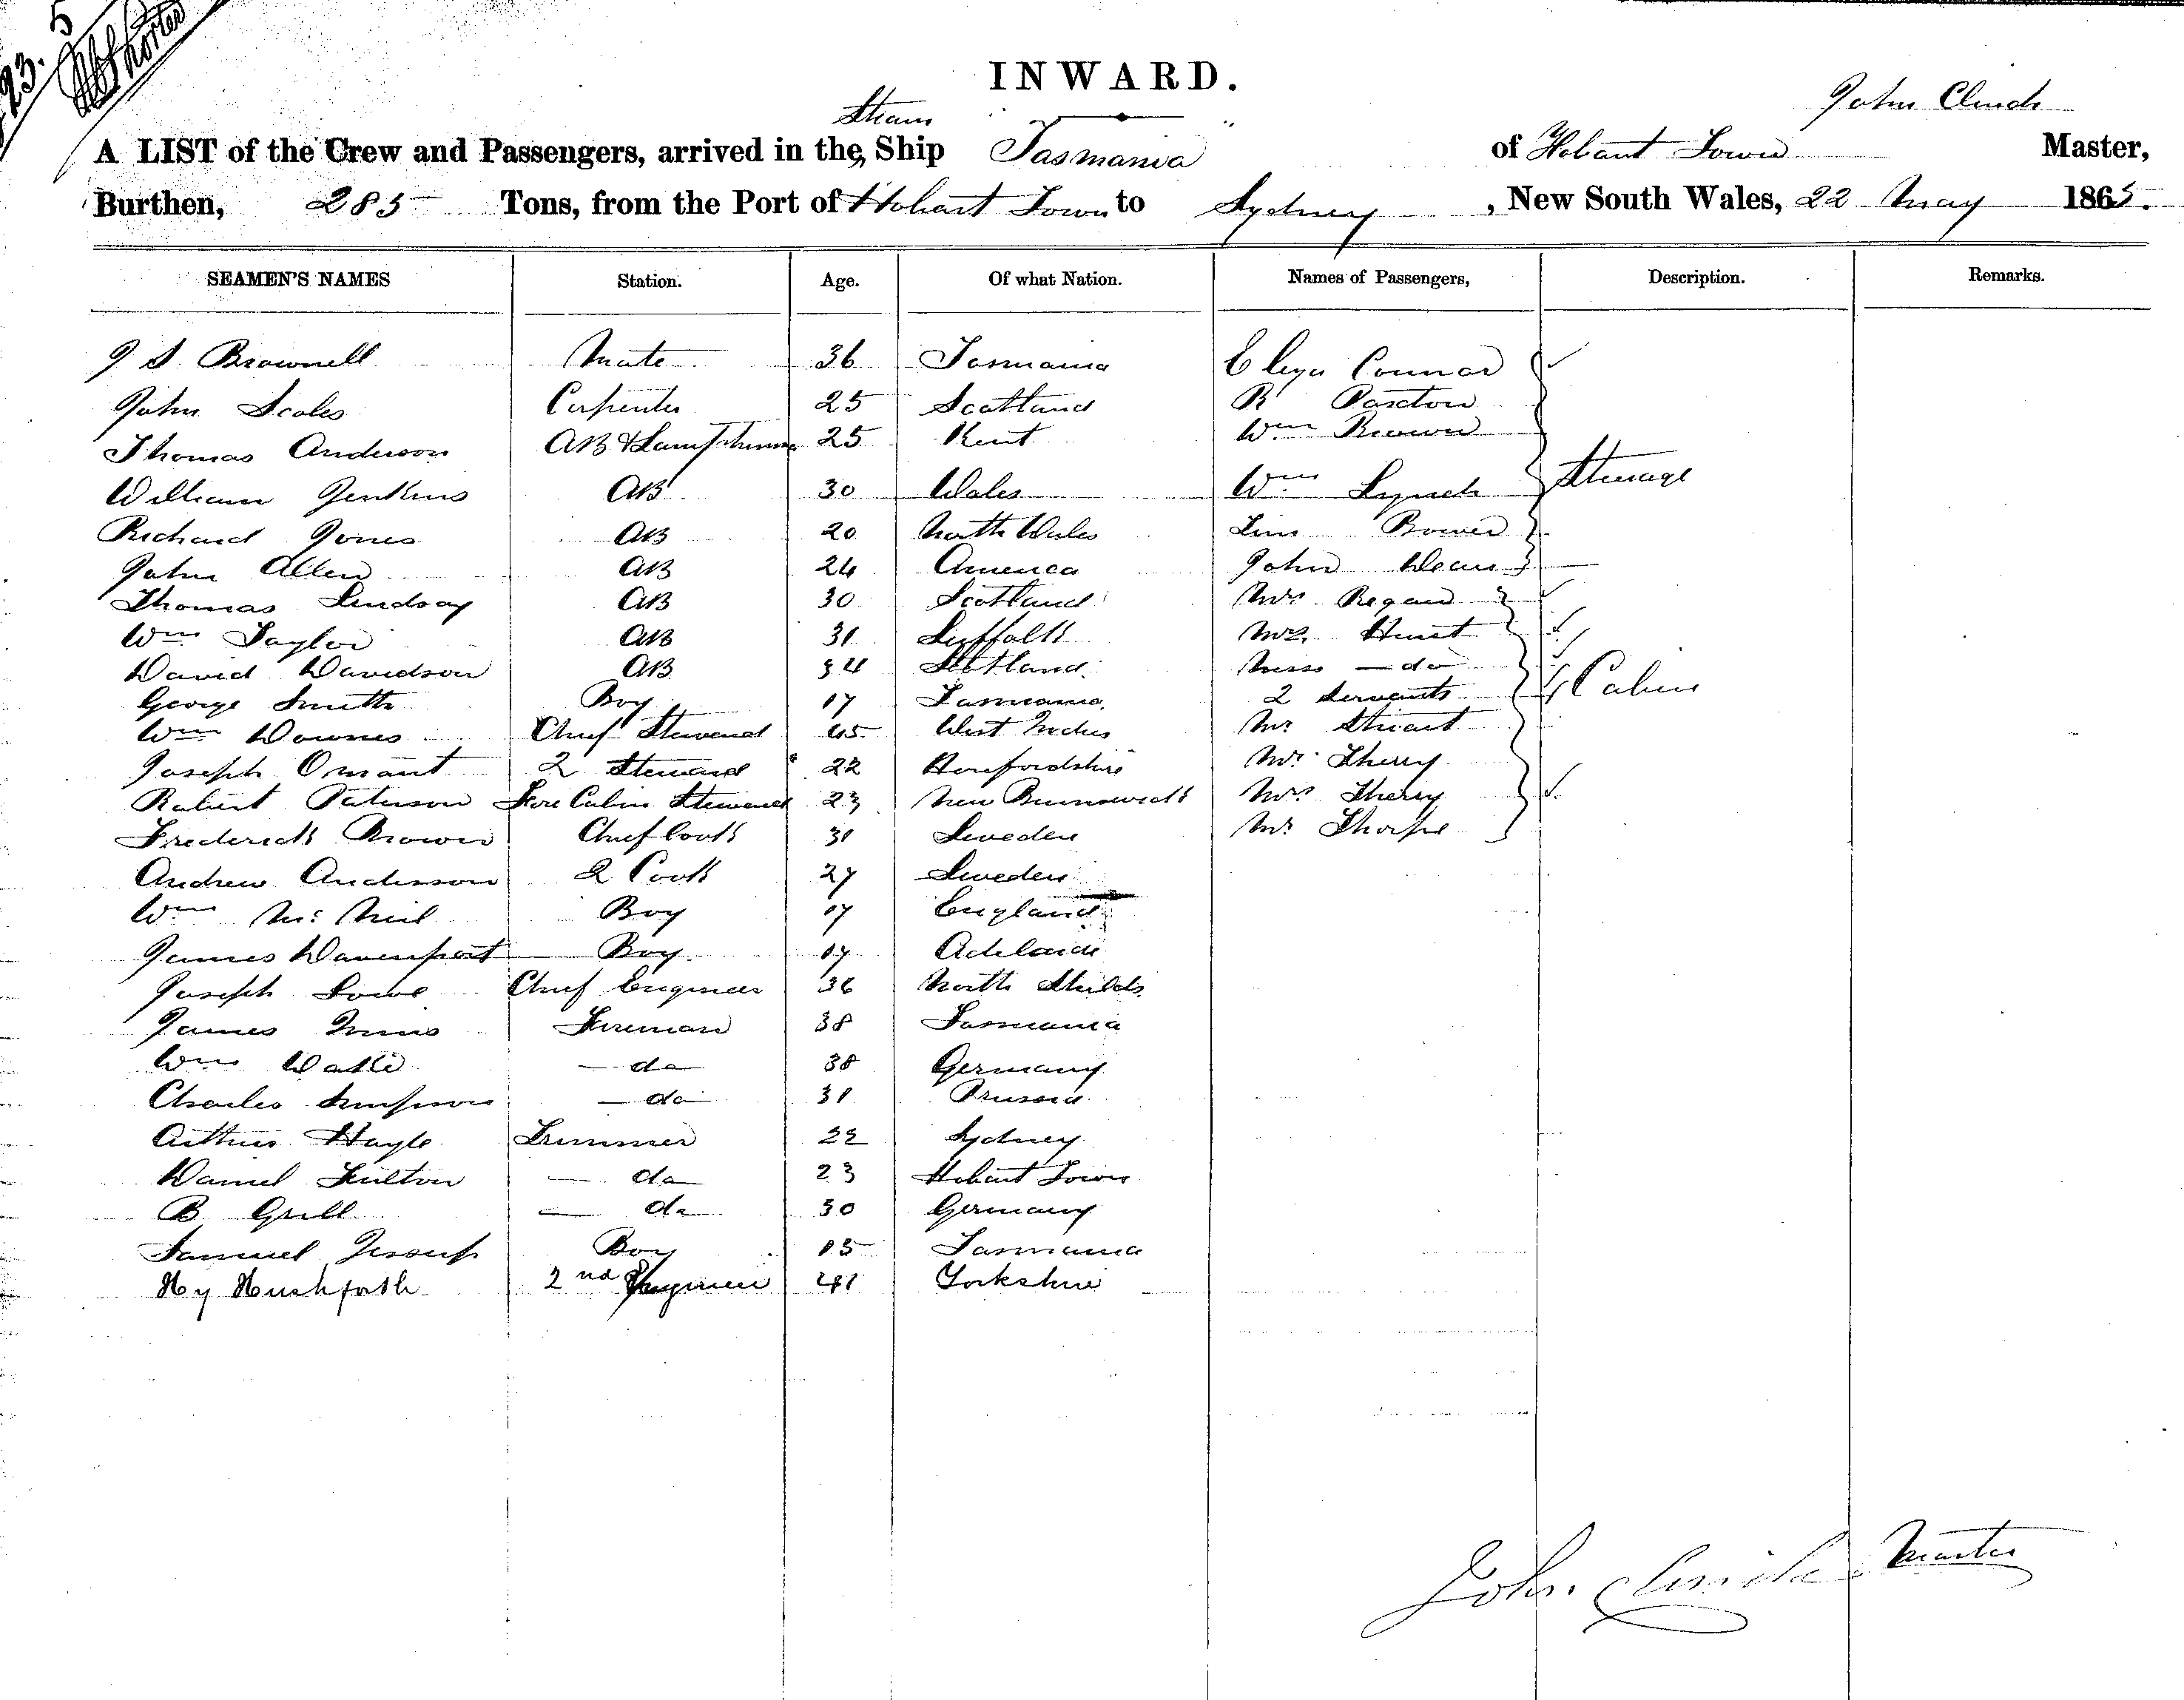 INWARD.
John Clinch
Steam
A LIST of the Crew and Passengers, arrived in the Ship Tasmania of Hobart Town Master,
Burthen, 285 Tons, from the Port of Hobart Town to Sydney, New South Wales, 22 May 1865.
SEAMEN'S NAMES Station. Age. Of what Nation. Names of Passengers, Description. Remarks.
J S Brownell Mate 36 Tasmania Connor
John Scales Carpenter 25 Scotland R Paxton
Thomas Anderson AB & Lamptrimmer 25 Kent Wm Brown
William Jenkins AB 30 Wales Wm Lynch Steerage
Richard Jones AB 20 North Wales Bower
John Allen AB 24 America John Dean
Thomas Lindsay AB 30 Scotland Mrs Regan
Wm Taylor AB 31 Suffolk Mrs. Hunt
David Davidson AB 34 Scotland Miss — do
George Smith Boy 17 Tasmania 2 Servants Cabin
Wm Downes Chief Steward 45 West Indies Mr Stuart
Joseph Omant 2 Steward 22 Herefordshire Mr Therry
Robert Paterson Fore Cabin Steward 23 New Brunswick Mrs Therry
Frederick Brown Chief Cook 31 Sweden Mr Thorpe
Andrew Anderson 2 Cook 27 Sweden
Wm McNeil Boy 17 England
James Davenport Boy 17 Adelaide
Joseph Lowe Chief Engineer 36 North Shields
James Innis Fireman 38 Tasmania
Wm — do 38 Germany
Charles Simpson — do 31 Prussia
Arthur Hayle Trimmer 22 Sydney
Daniel Fulton — do 23 Hobart Town
B Grill — do 30 Germany
Samuel Jessup Boy 15 Tasmania
Hy Hushforth 2nd Engineer 41 Yorkshire
John Clinch Master